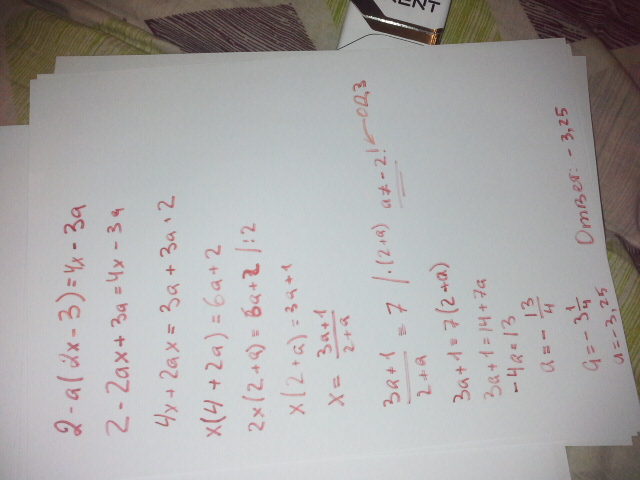 2 - a(2x - 3) = 4x - 3a
2 - 2ax + 3a = 4x - 3a
4x + 2ax = 3a + 3a + 2
x(4 + 2a) = 6a + 2
2x(2 + a) = 6a + 2 | : 2
x(2 + a) = 3a + 1
x = \frac{3a+1}{2+a}
\frac{3a+1}{2+a} = 7 | · (2+a) a ≠ -2! ← ОДЗ
3a + 1 = 7(2 + a)
3a + 1 = 14 + 7a
-4a = 13
a = -\frac{13}{4}
a = -3\frac{1}{4}
a = -3,25 Ответ: -3,25